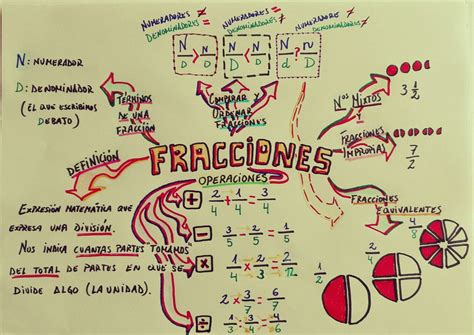 NUMERADORES ≠
DENOMINADORES =
NUMERADORES =
DENOMINADORES ≠
NUMERADORES ≠
DENOMINADORES ≠
N N
D D
N < N
D D
N ? n
d D
N: NUMERADOR
D: DENOMINADOR
(EL QUE ESCRIBIMOS
DEBAJO)
TÉRMINOS
DE UNA
FRACCIÓN
COMPARAR Y
ORDENAR
FRACCIONES
NOS MIXTOS
3 1/2
FRACCIONES
IMPROPIAS
7/2
DEFINICIÓN
FRACCIONES
OPERACIONES
FRACCIONES
EQUIVALENTES
1/2
2/4
4/8
EXPRESIÓN MATEMÁTICA QUE
EXPRESA UNA DIVISIÓN.
NOS INDICA CUANTAS PARTES TOMAMOS
DEL TOTAL DE PARTES EN QUE SE
DIVIDE ALGO (LA UNIDAD).
+ 2/4 + 1/4 = 3/4
- 3/5 - 1/5 = 2/5
×
÷